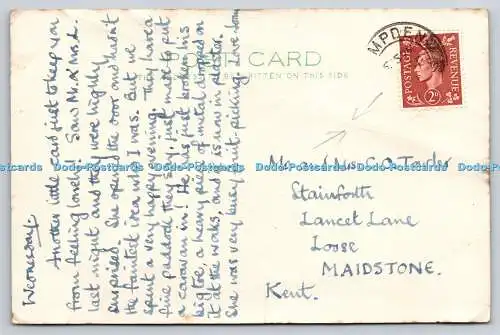 Wednesday.
Another little card just to keep you
from feeling lonely! Saw Mr. & Mrs. L.
last night and they were highly
surprised. She opened the door and hadn't
the faintest idea who I was. But we
spent a very happy evening. They have a
fine paddock they say, just made to put
a caravan in! He has just broken his
big toe, a heavy piece of metal dropped on
it at the works, and is now in plaster.
She was very busy fruit-picking. Love
POST CARD
WRITTEN ON THIS SIDE
POSTAGE REVENUE
2D
Mr. and Mrs.
Stainforth
Lancet Lane
Loose
MAIDSTONE.
Kent.
Dodo-Postcards Dodo-Postcards Dodo-Postcards Dodo-Postcards Dodo-Postcards